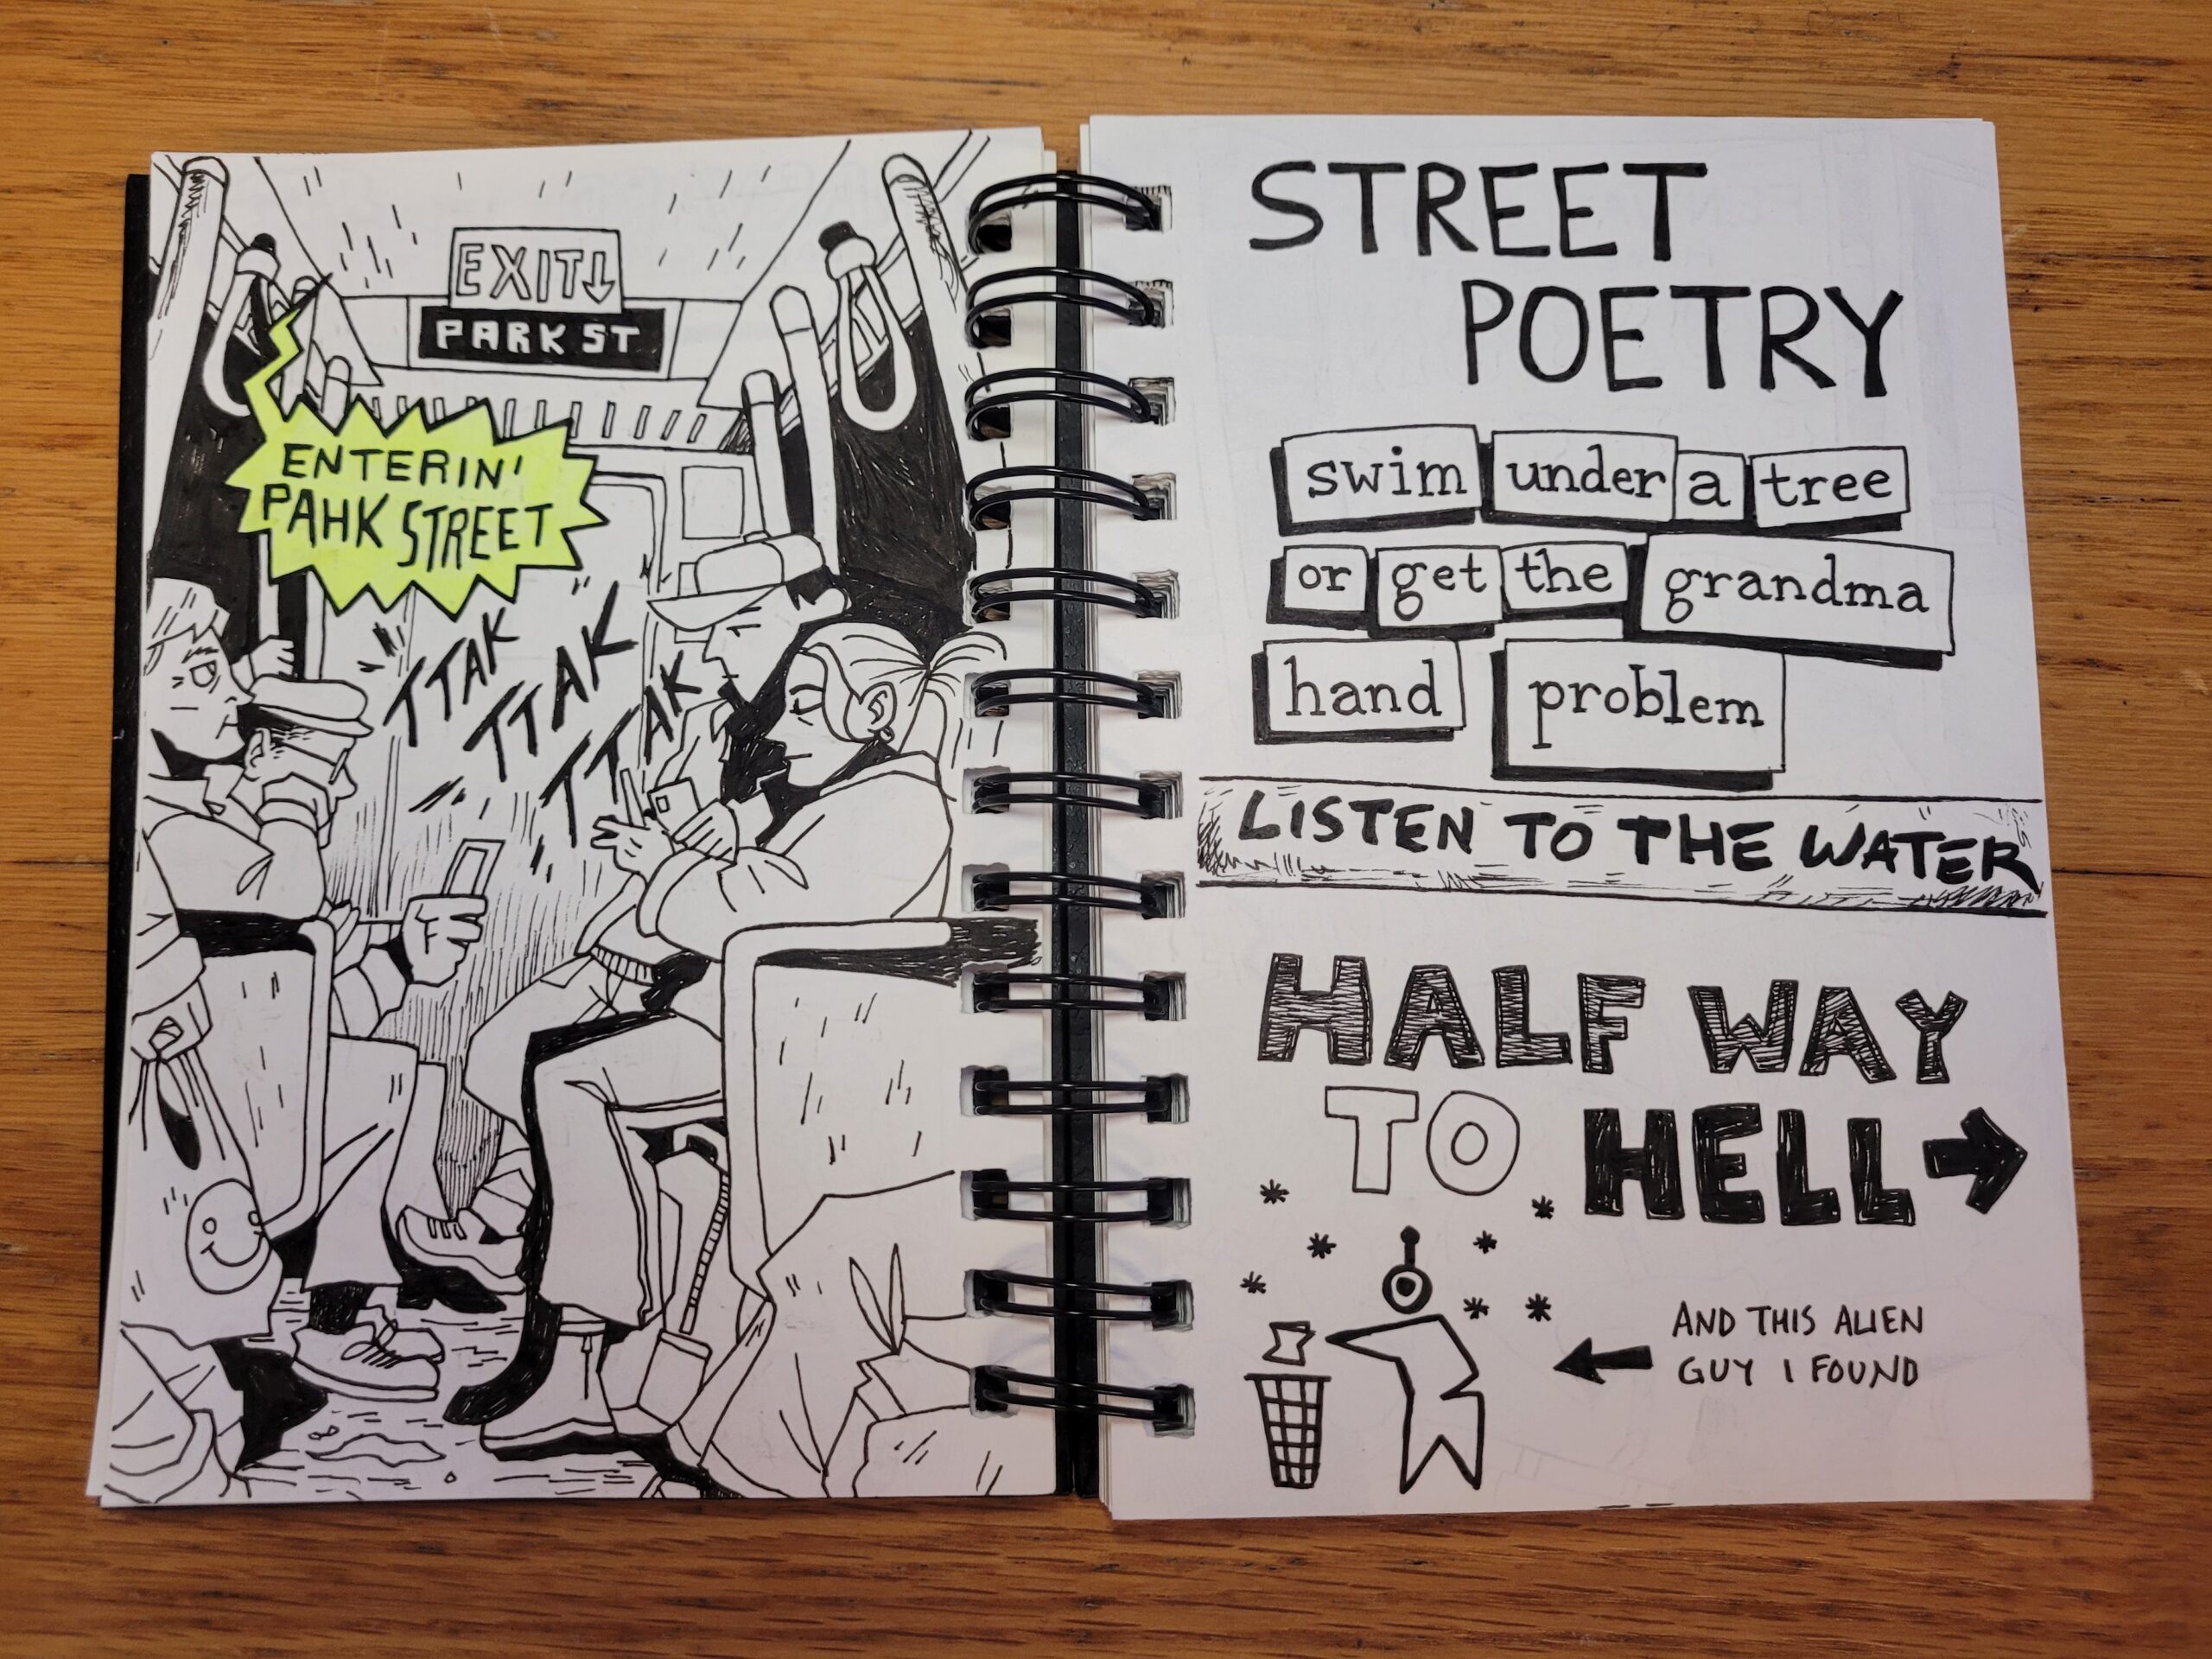 EXIT↓
PARK ST
ENTERIN'
PAHK STREET
TTAK
TTAK
TTAK
STREET
POETRY
swim under a tree
or get the grandma
hand problem
LISTEN TO THE WATER
HALF WAY
TO HELL →
AND THIS ALIEN
GUY I FOUND